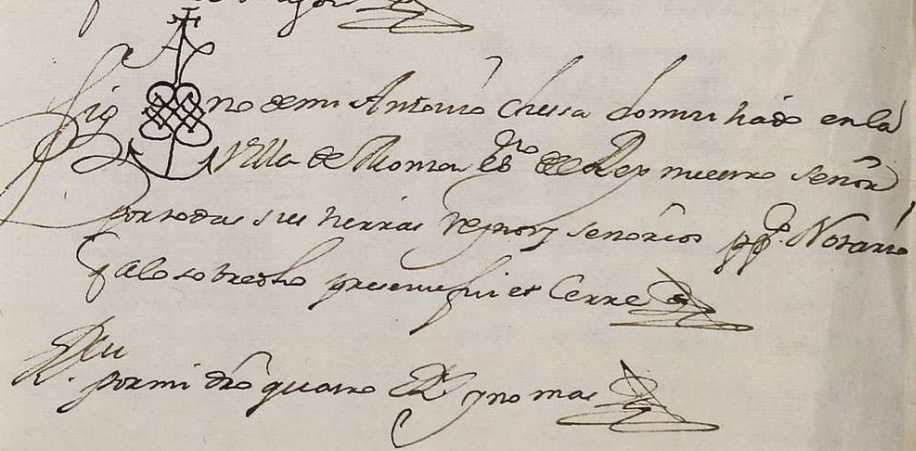 Sig no de mi Antonio Chessa domiciliado en la
Villa de Roma esno del Rey nuestro señor
por todas sus tierras reynos y señorios ppco Notario
q a lo sobredho presente fui et cerre
por mi dro quatro Rs y no mas